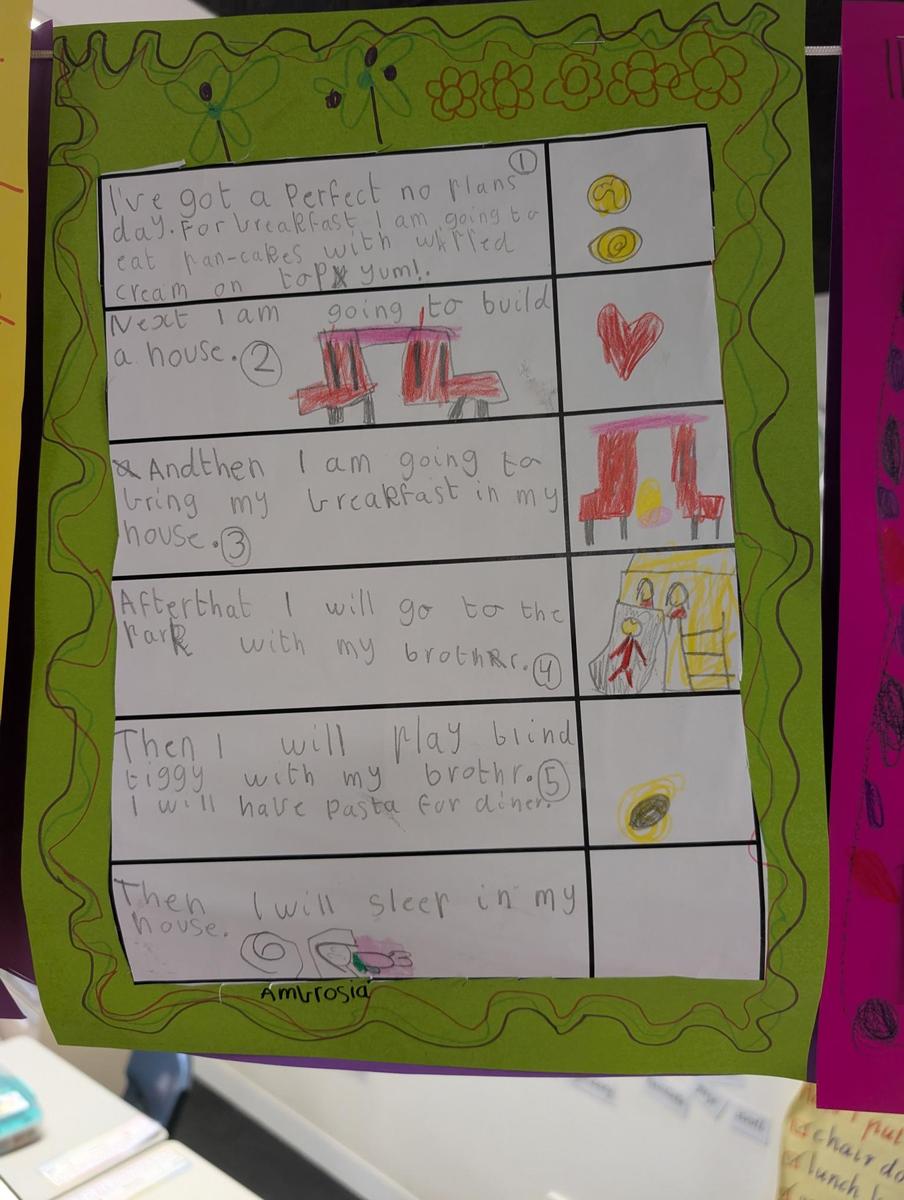 I've got a perfect no plans ①
day. For breakfast I am going to
eat pan-cakes with wirred
cream on top yum!.
Next I am going to build
a house. ②
Andthen I am going to
bring my breakfast in my
house. ③
Afterthat I will go to the
park with my brother. ④
Then I will play blind
tiggy with my brothr. ⑤
I will have pasta for diner.
Then I will sleep in my
house. ⑥
Ambrosia
put
chair do
lunch